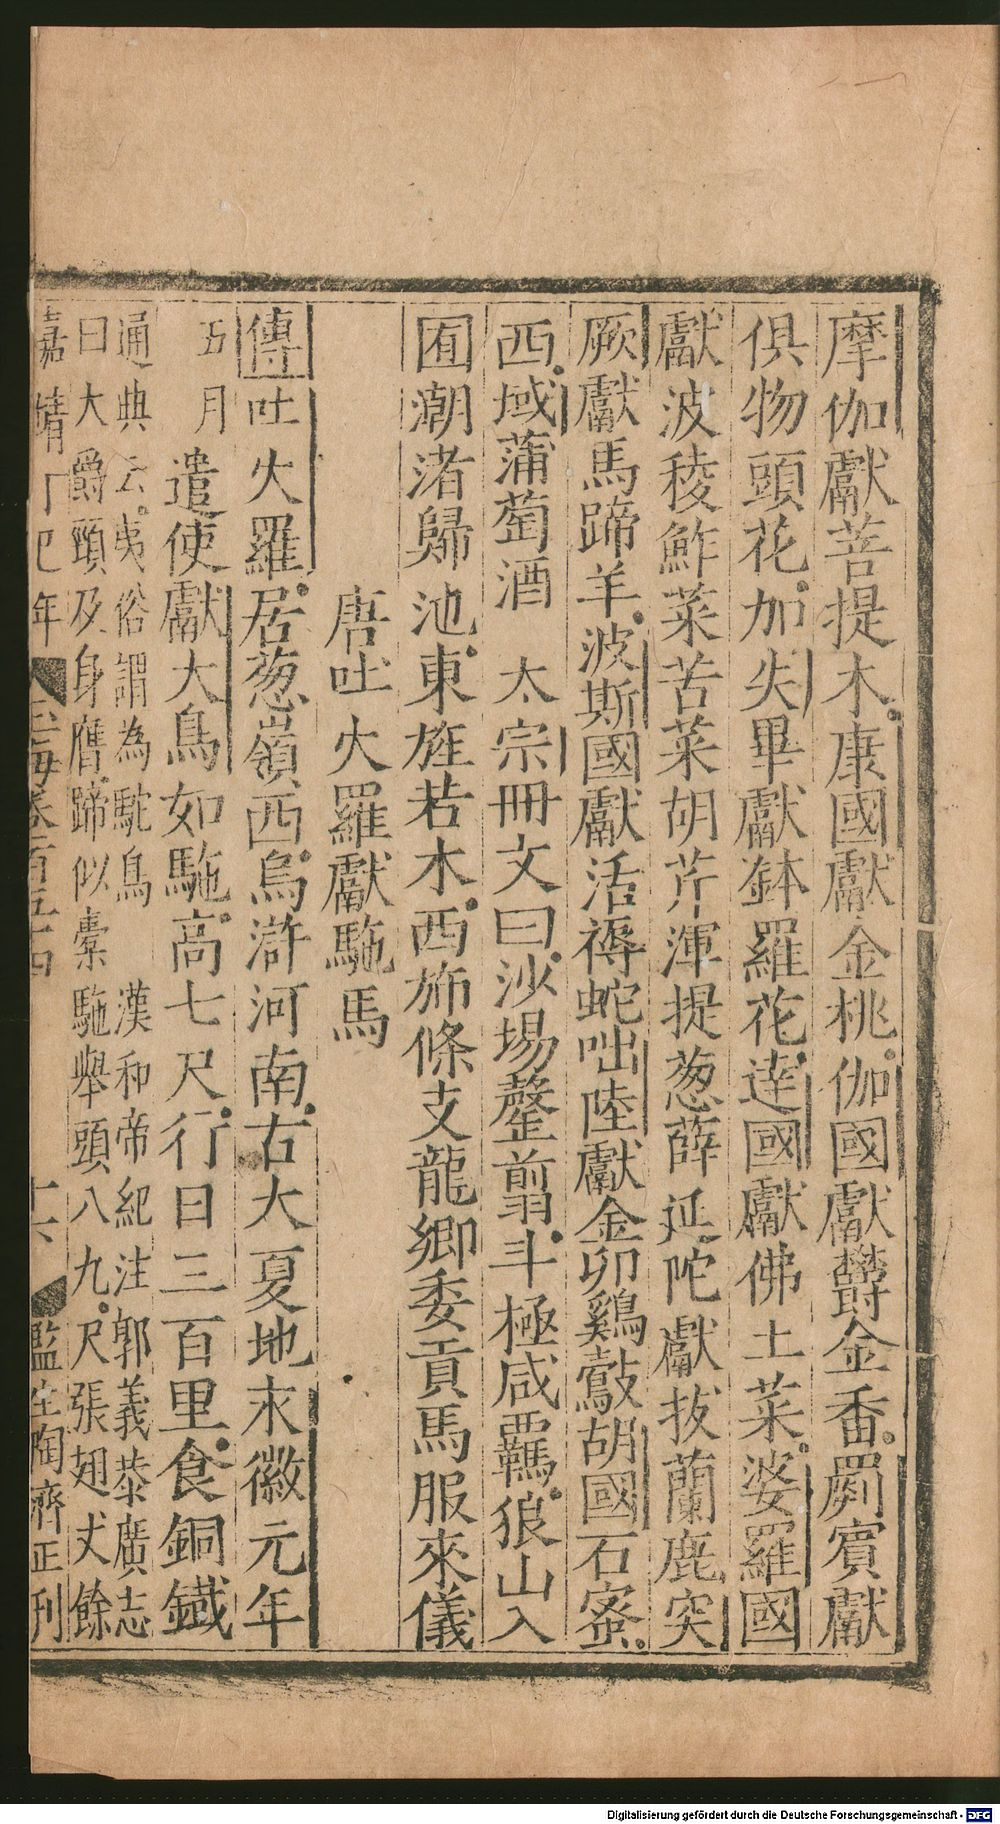 摩伽獻菩提木康國獻金桃伽國獻鬱金香罽賓獻
俱物頭花加失畢獻鉢羅花達國獻佛土菜婆羅國
獻波稜鮓菜苦菜胡芹渾提葱薛延陀獻拔蘭鹿突
厥獻馬蹄羊波斯國獻活褥蛇咄陸獻金卵鷄鷇胡國石蜜
西域蒲萄酒 太宗冊文曰沙場罄翦斗極咸羈狼山入
囿潮渚歸池東旌若木西斾條支龍卿委貢馬服來儀
唐吐火羅獻駞馬
傳吐火羅居葱嶺西烏滸河南古大夏地永徽元年
五月遣使獻大鳥如駞高七尺行日三百里食銅鐵
通典云夷俗謂為駝鳥 漢和帝紀注郭義恭廣志
曰大爵頸及身膺蹄似橐駞舉頭八九尺張翅丈餘
嘉靖丁巳年 玉海卷一百五十四 十六 監生陶濟正刊
Digitalisierung gefördert durch die Deutsche Forschungsgemeinschaft - DFG